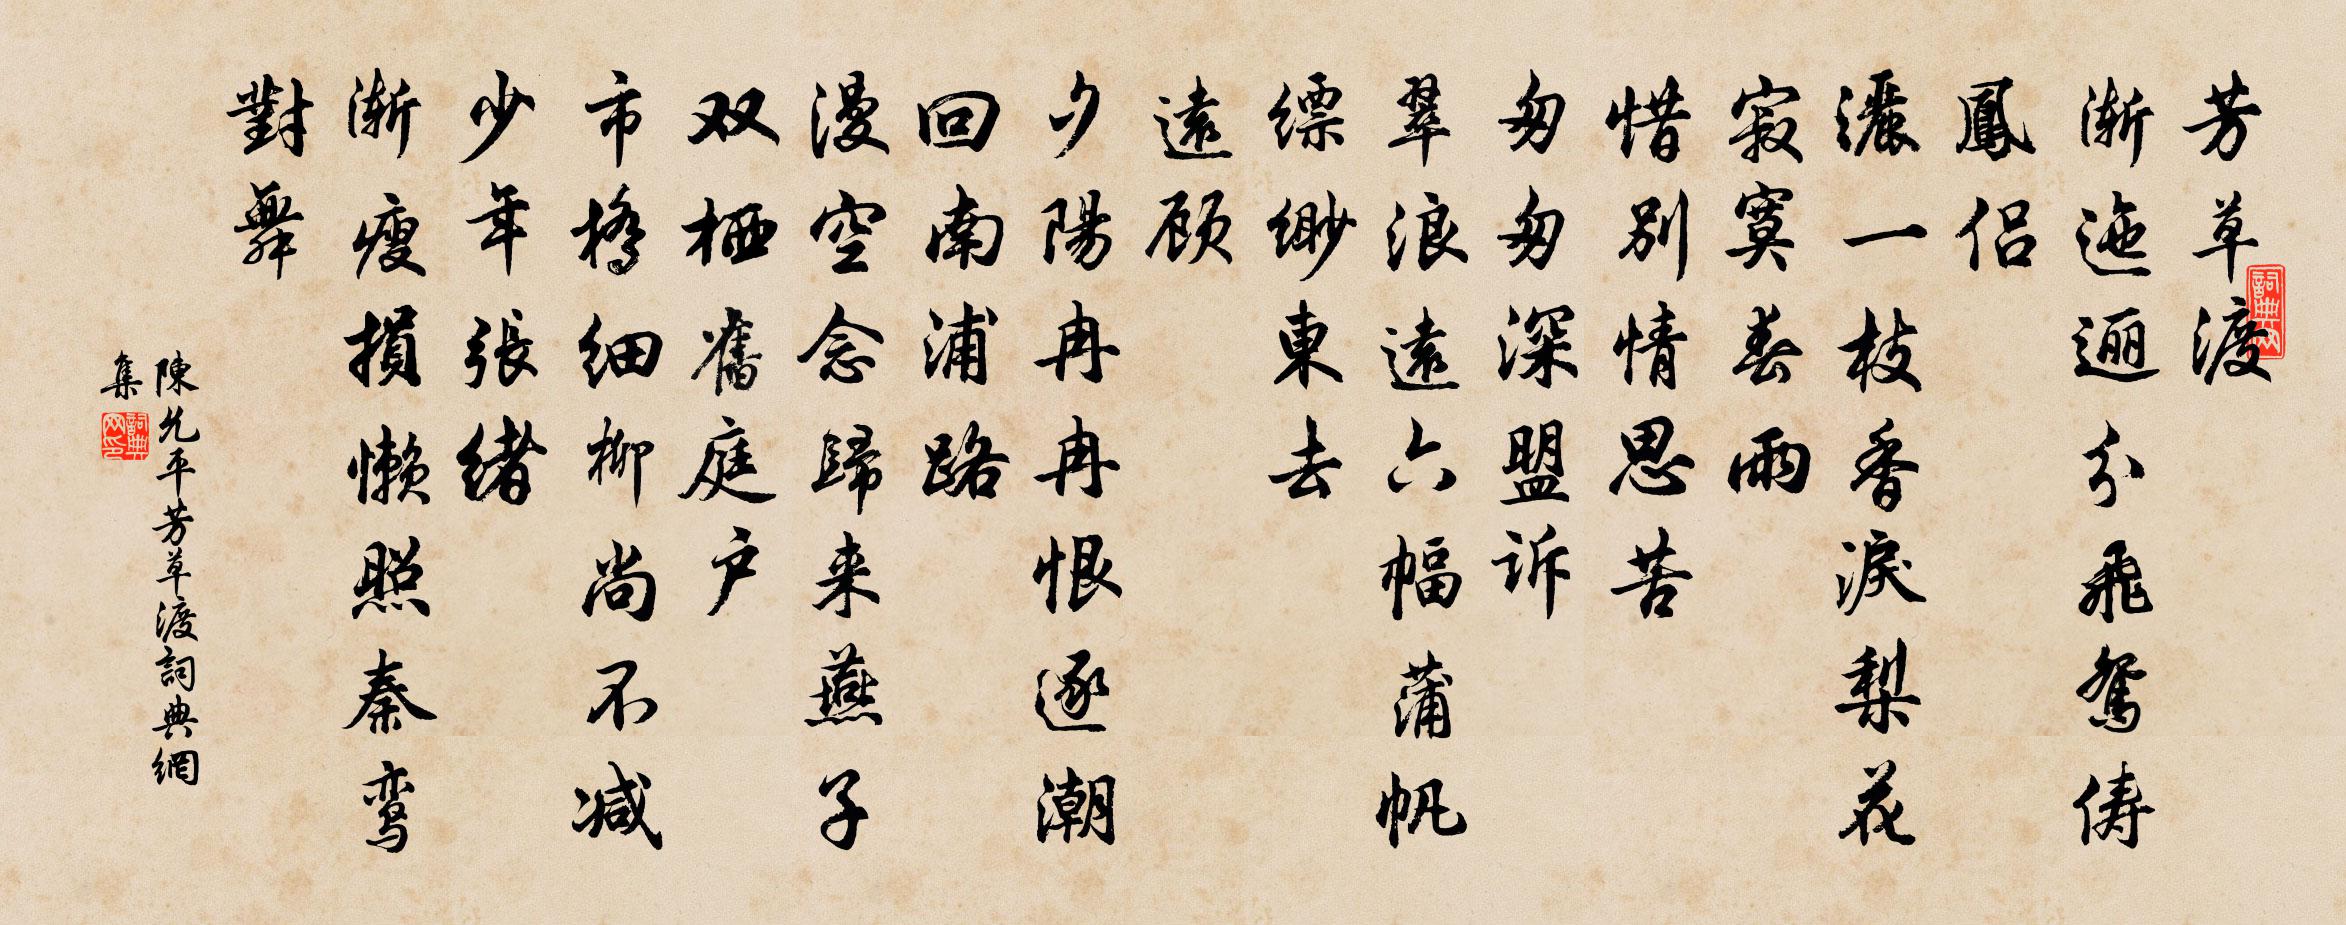 芳草渡
漸迤逦分飛鴛俦
鳳侣
灑一枝香淚梨花
寂寞春雨
惜別情思苦
匆匆深盟诉
翠浪遠六幅蒲帆
缥缈東去
遠顾
夕陽冉冉恨逐潮
回南浦路
漫空念歸来燕子
双栖舊庭户
市橋细柳尚不减
少年張绪
漸瘦損懒照秦鸾
對舞
陳允平芳草渡詞典網
集
詞典网
詞典网印